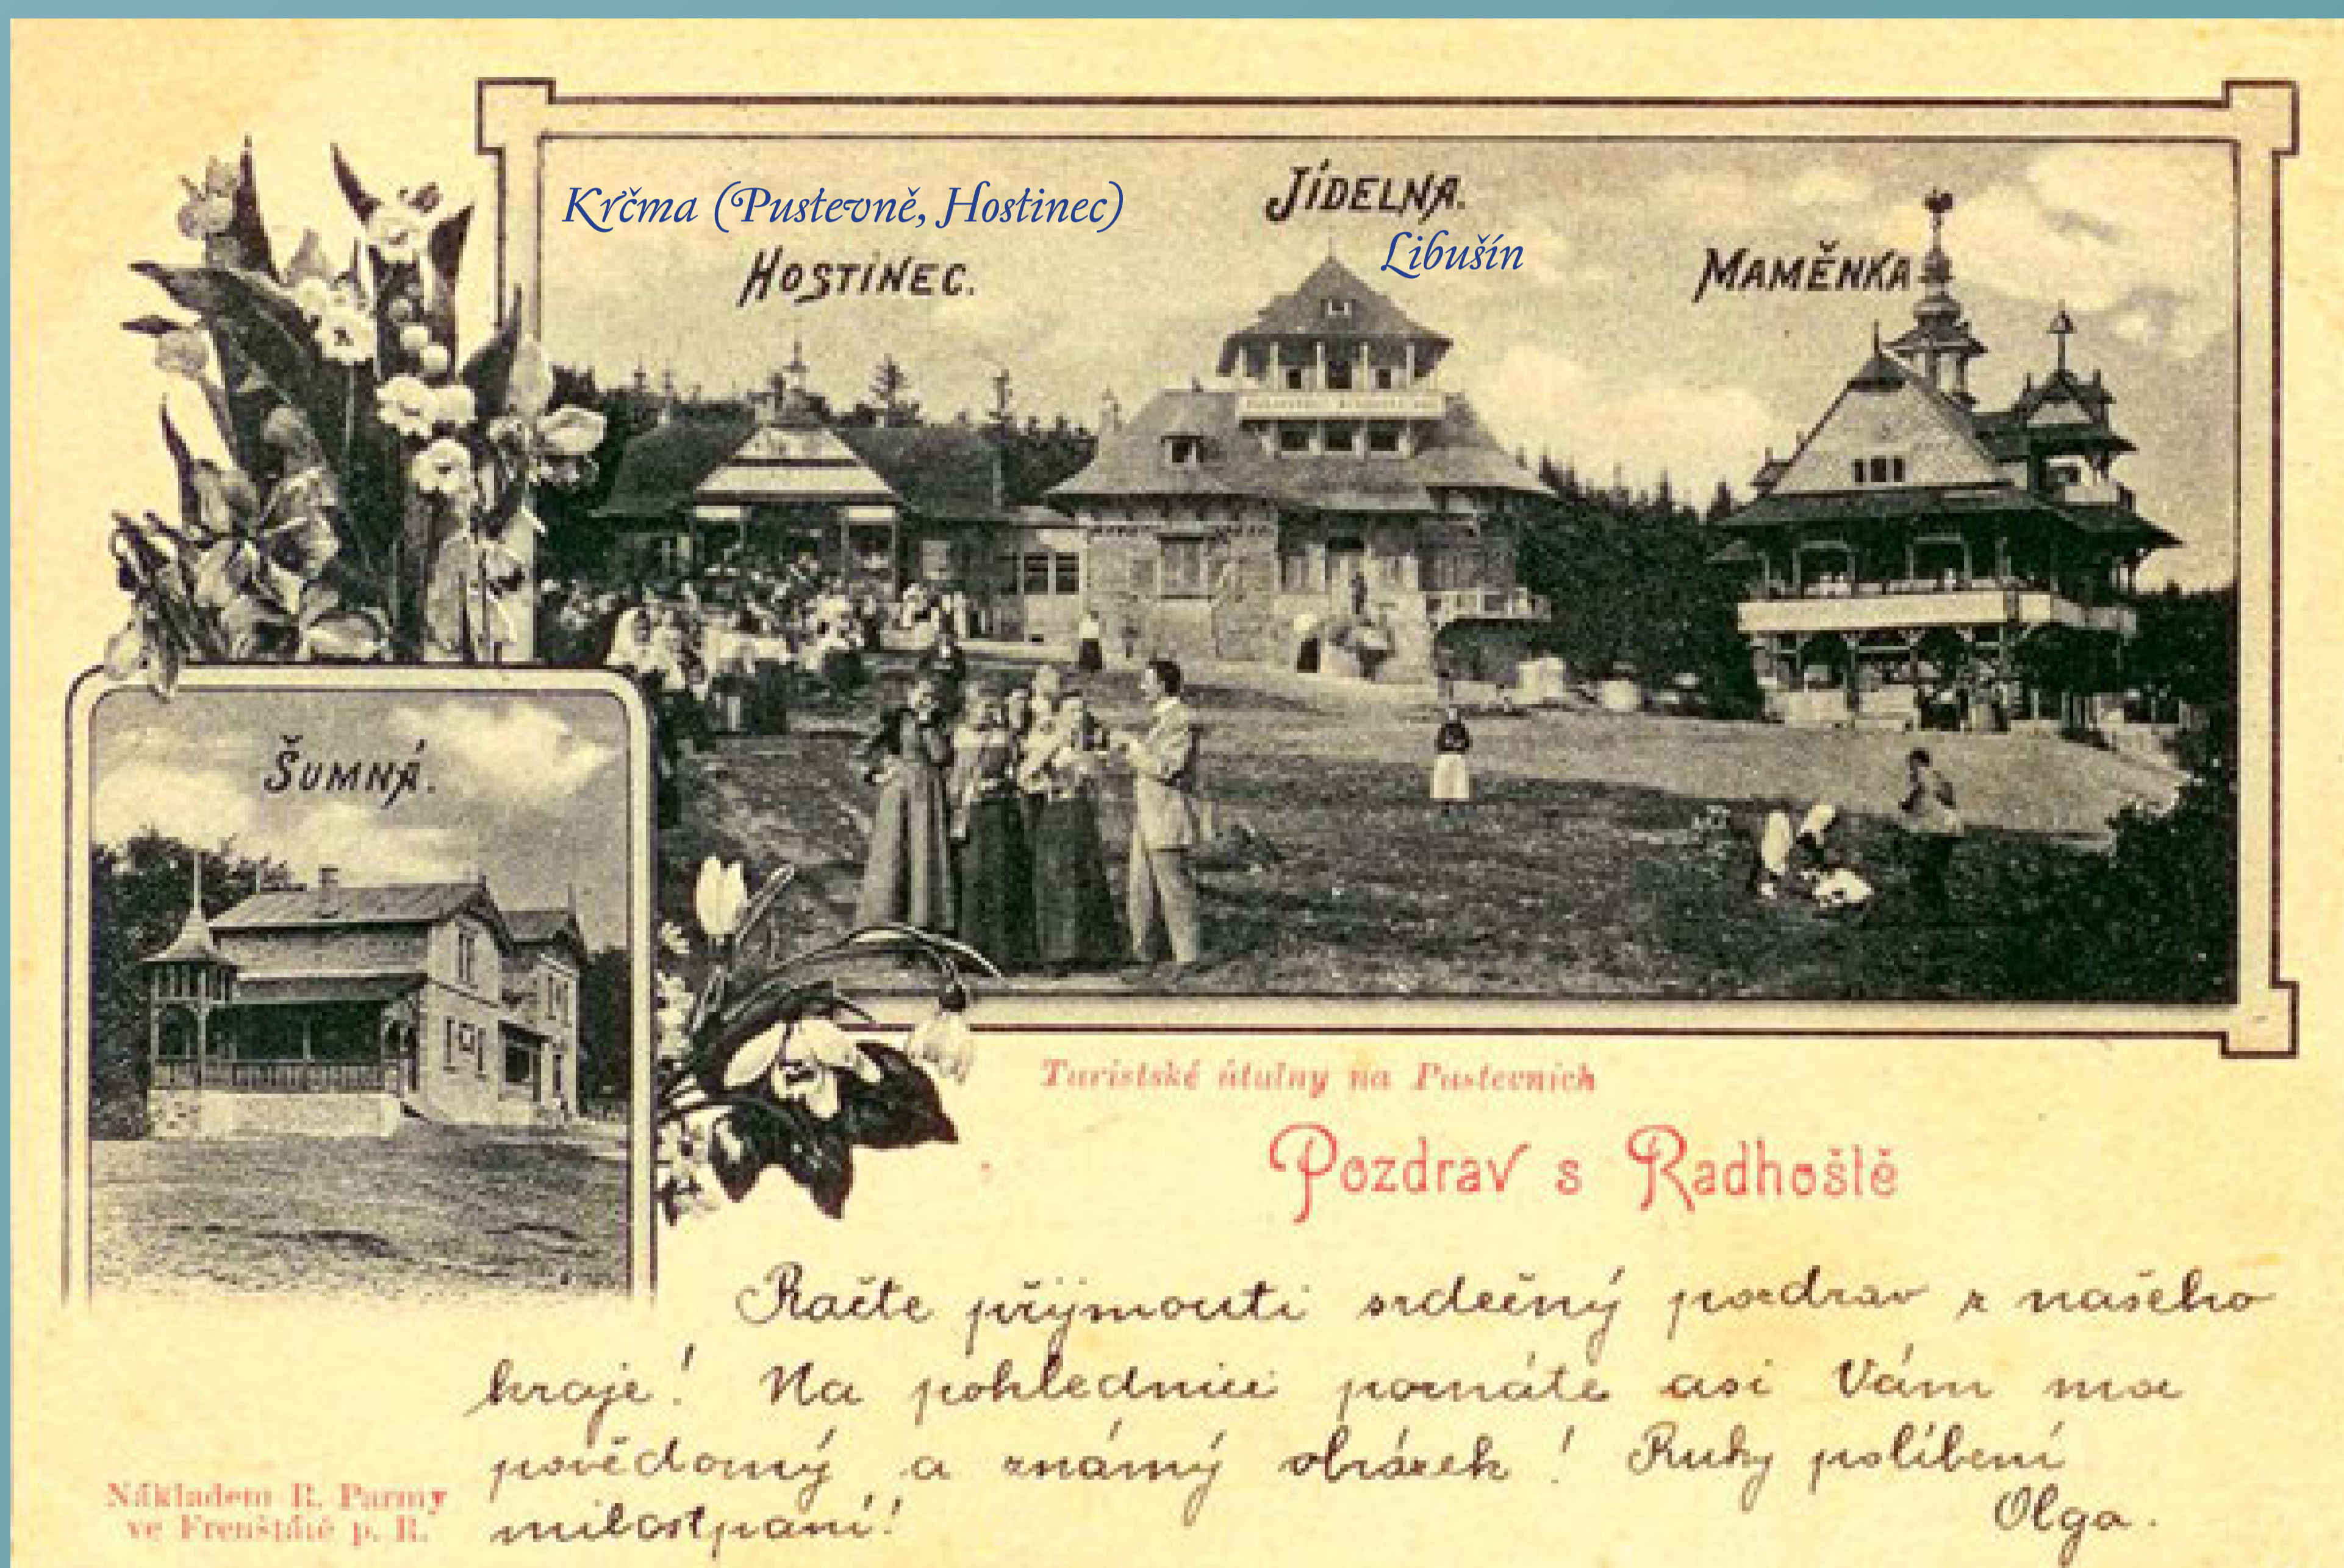 Krčma (Pustevně, Hostinec)
HOSTINEC.
JÍDELNA.
Libušín
MAMĚNKA
ŠUMNÁ.
Turistské útulny na Pustevních
Pozdrav s Radhoště
Račte přijmouti srdečný pozdrav z našeho
kraje! Na pohlednici poznáte asi Vám
povědomý a známý obrázek! Ruky políbení
milostpaní!
Olga.
Nákladem R. Parmy
ve Frenštátě p. R.